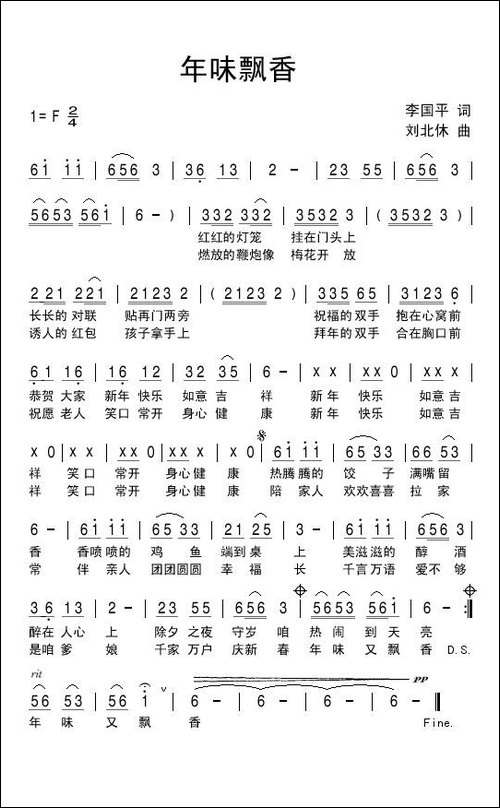 年味飘香
1= F 2/4
李国平 词
刘北休 曲
61 11 | 656 3 | 36 13 | 2 - | 23 55 | 656 3 |
5653 561 | 6 - ) | 332 332 | 3532 3 | ( 3532 3 ) |
红红的灯笼 挂在门头上
燃放的鞭炮像 梅花开 放
2 21 221 | 2123 2 | ( 2123 2 ) | 335 65 | 3123 6 |
长长的 对联 贴再门两旁 祝福的 双手 抱在心窝前
诱人的 红包 孩子拿手上 拜年的 双手 合在胸口前
61 16 | 16 12 | 32 35 | 6 - | xx xx | x x 0 |
恭贺 大家 新年 快乐 如意 吉 祥 新年 快乐 如意吉
祝愿 老人 笑口 常开 身心 健 康 新年 快乐 如意吉
x x 0 | xx xx | x x 0 | 61 11 | 65 33 | 66 53 |
祥 笑口 常开 身心健 康 热腾 腾的 饺 子 满嘴 留
祥 笑口 常开 身心健 康 陪 家人 欢欢喜喜 拉 家
6 - | 61 11 | 65 33 | 221 235 | 2 - | 61 11 | 656 3 |
香 香喷 喷的 鸡 鱼 端到 桌 上 美滋 滋的 醇 酒
常 伴 亲人 团团圆圆 幸 福 长 千言 万语 爱不 够
3 6 13 | 2 - | 23 55 | 656 3 | 5653 561 | 6 - :|
醉在 人心 上 除夕 之夜 守岁 咱 热 闹 到 天 亮
是咱 爹 娘 千家 万户 庆新 春 年 味 又 飘 香 D.S.
rit
pp
56 53 | 56 1 v | 6 - | 6 - | 6 - | 6 - ||
年 味 又 飘 香 Fine.